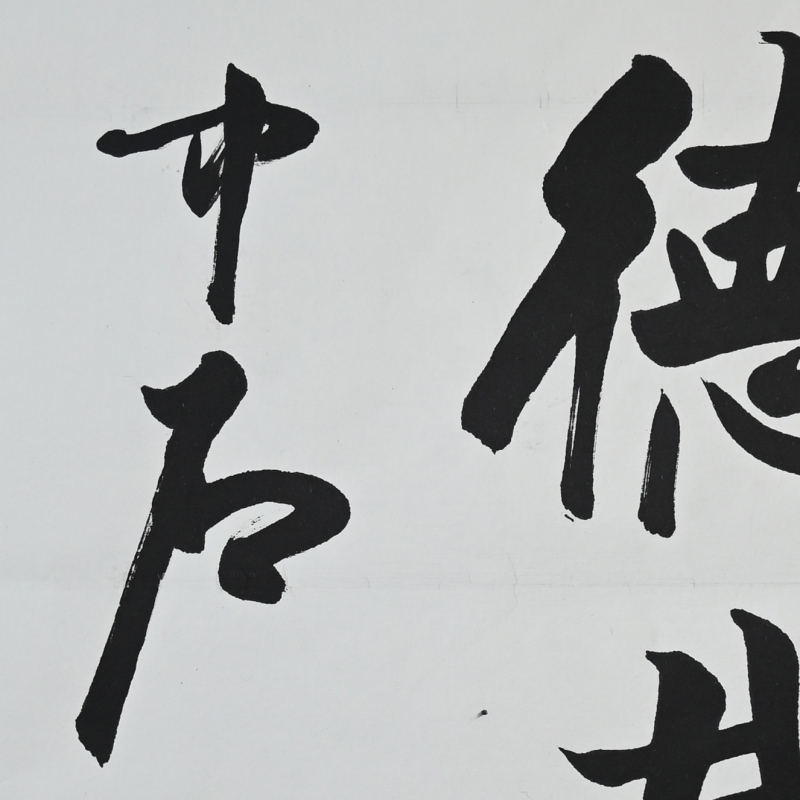 德
中石